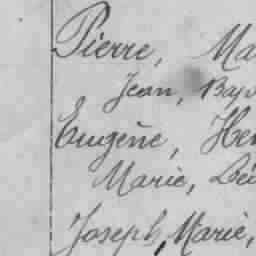 Pierre, Ma
Jean, Bap
Eugène, Hen
Marie, Léo
Joseph, Marie,